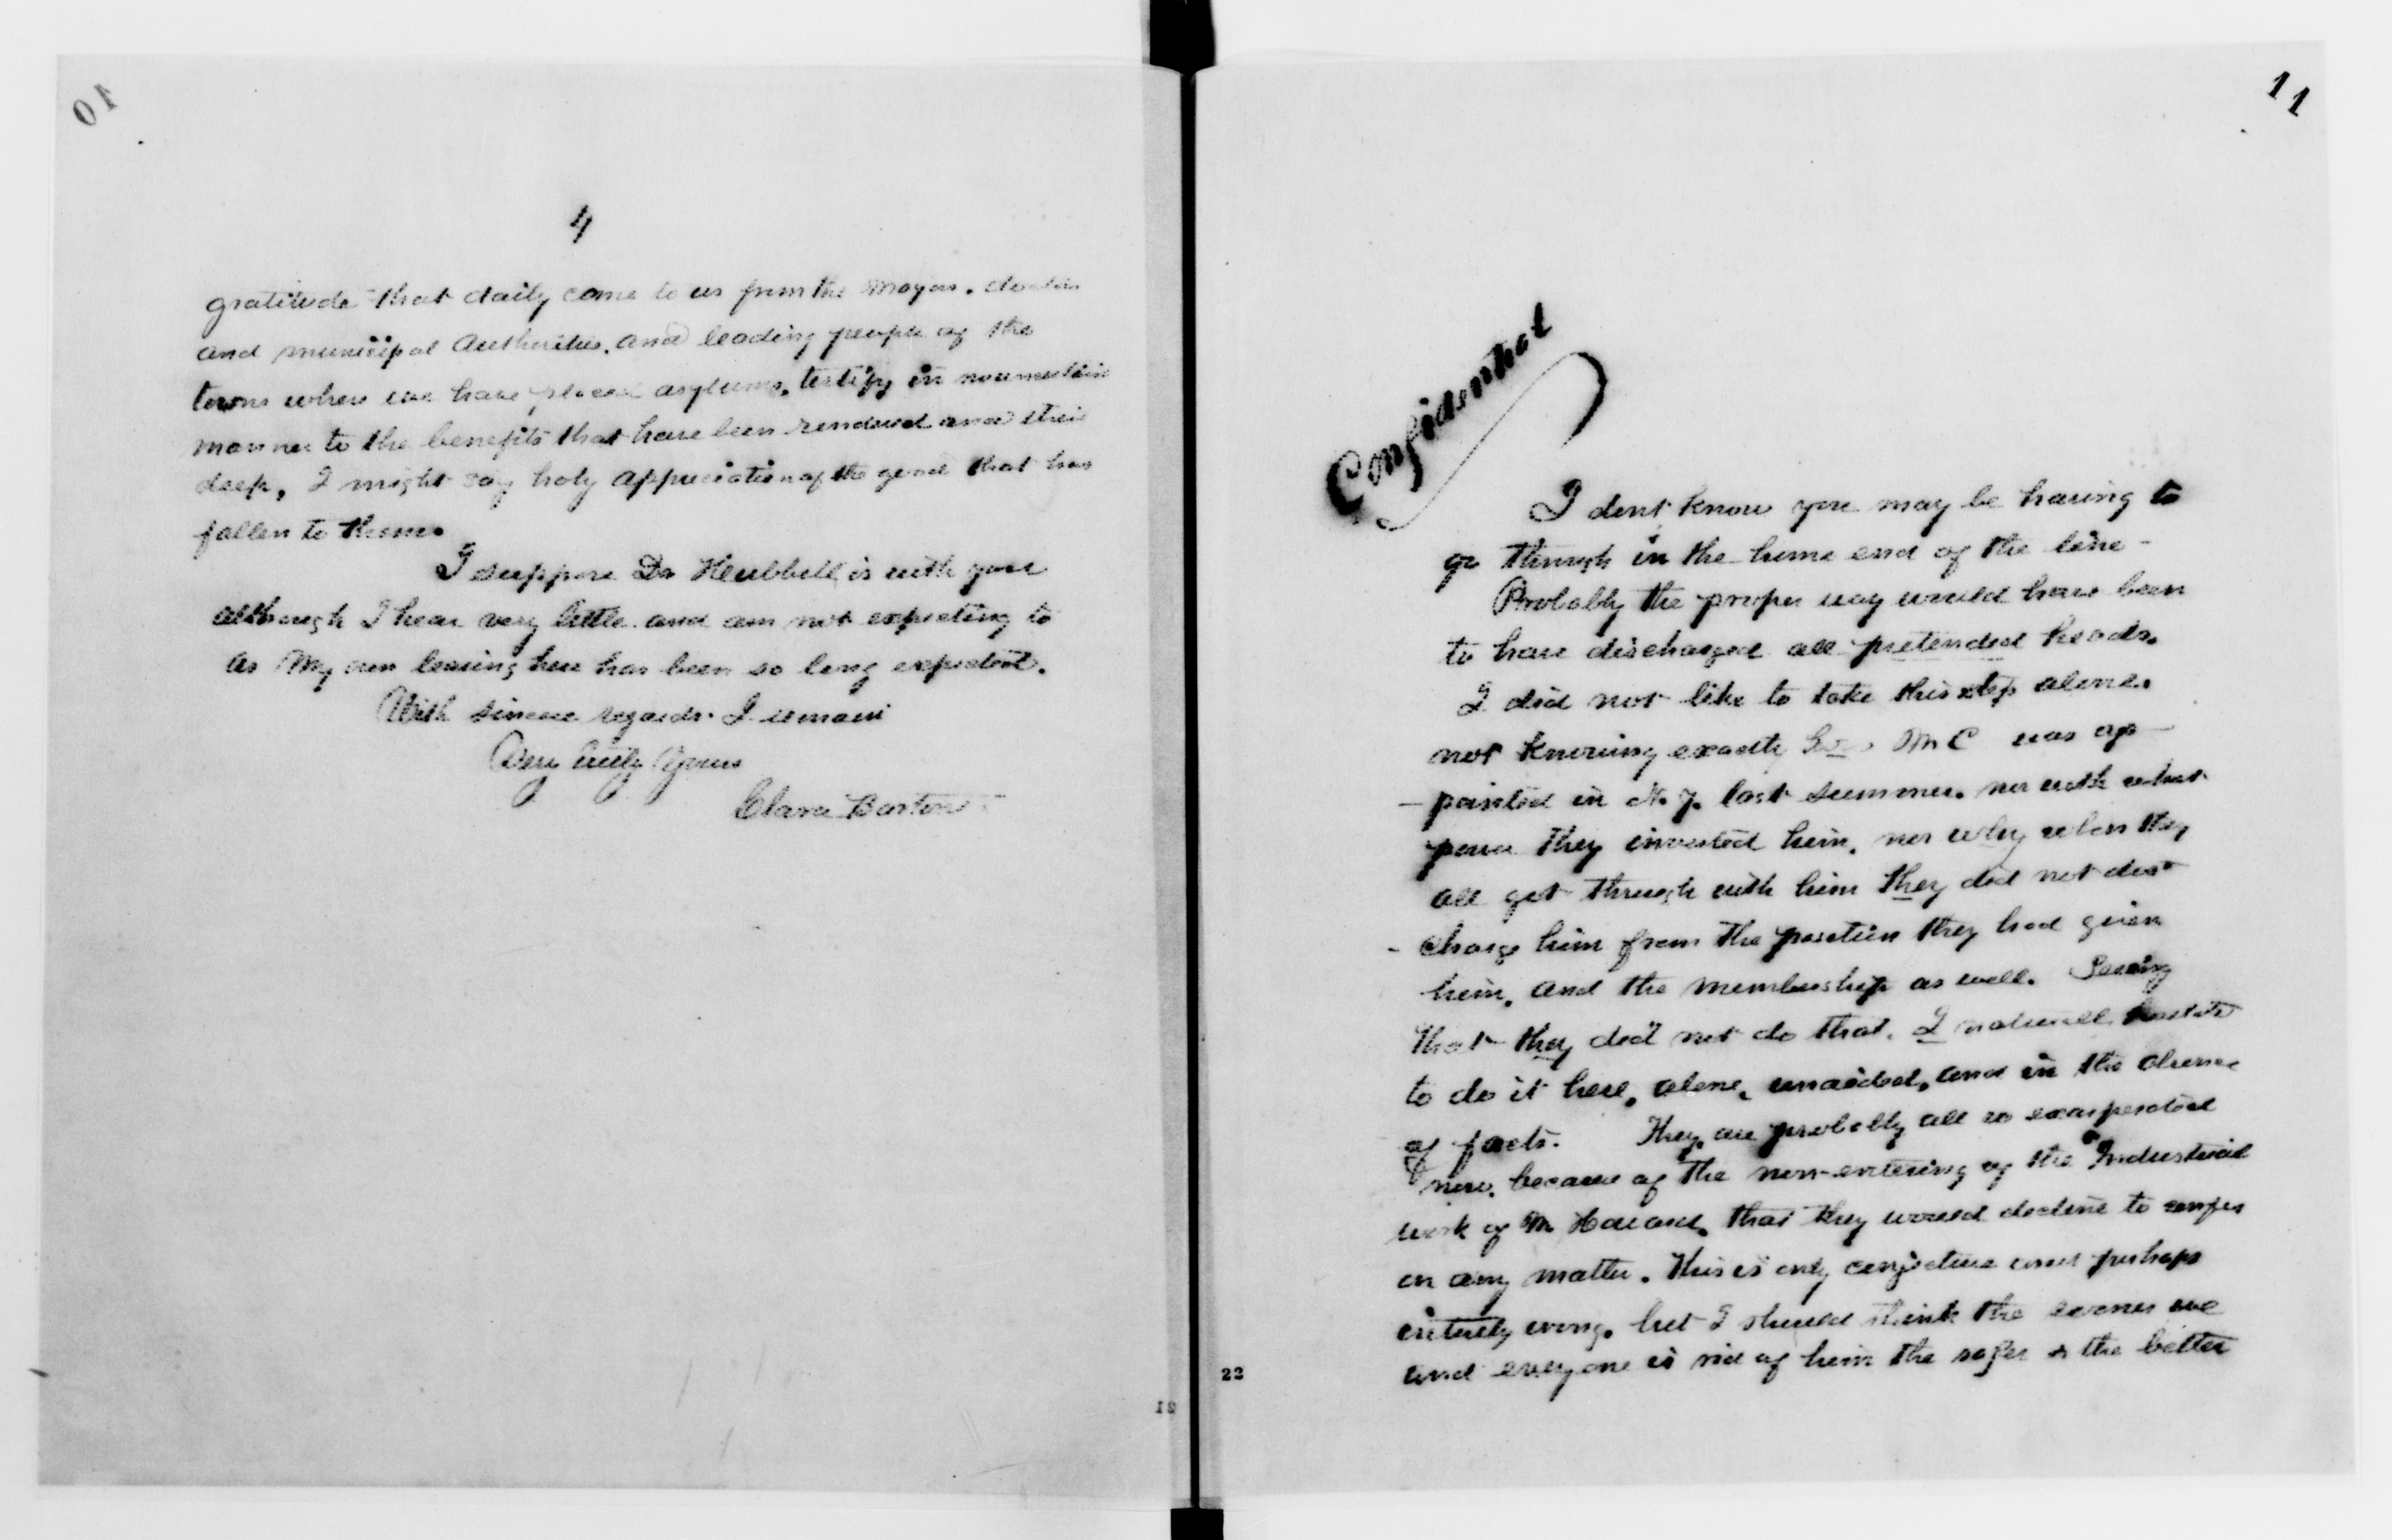 10
4
gratitude that daily come to us from the Mayors.
and municipal authorities, and leading people of the
towns where we have placed asylums, testify in no uncertain
manner to the benefits that have been rendered and their
deep, I might say holy appreciation of the good that has
fallen to them.
I suppose Dr Hubbell is with you
although I hear very little and am not expecting to
as my own leaving here has been so long expected.
With sincere regards I remain
Very truly yours
Clara Barton
21
11
Confidential
I dont know you may be having to
go through in the home end of the line -
Probably the proper way would have been
to have discharged all pretended heads.
I did not like to take this step alone.
not knowing exactly Mc C was ap-
- pointed in N.Y. last summer. nor with what
power they invested him, nor why when they
all got through with him they did not dis-
- charge him from the position they had given
him, and the membership as well. Seeing
that they did not do that, I naturally hesitate
to do it here, alone, unaided, and in the absence
of facts. They are probably all so exasperated
now, because of the non-entering of the Industrial
work of Mr Howard, that they would decline to confer
on any matter. This is only conjecture and perhaps
entirely wrong, but I should think the sooner we
and every one is rid of him the safer & the better
22